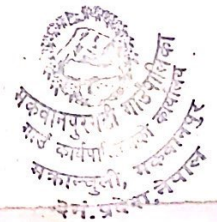 मकवानपुरगढी गाउँपालिका
गाउँ कार्यपालिकाको कार्यालय
मकवानपुर
प्रदेश, नेपाल